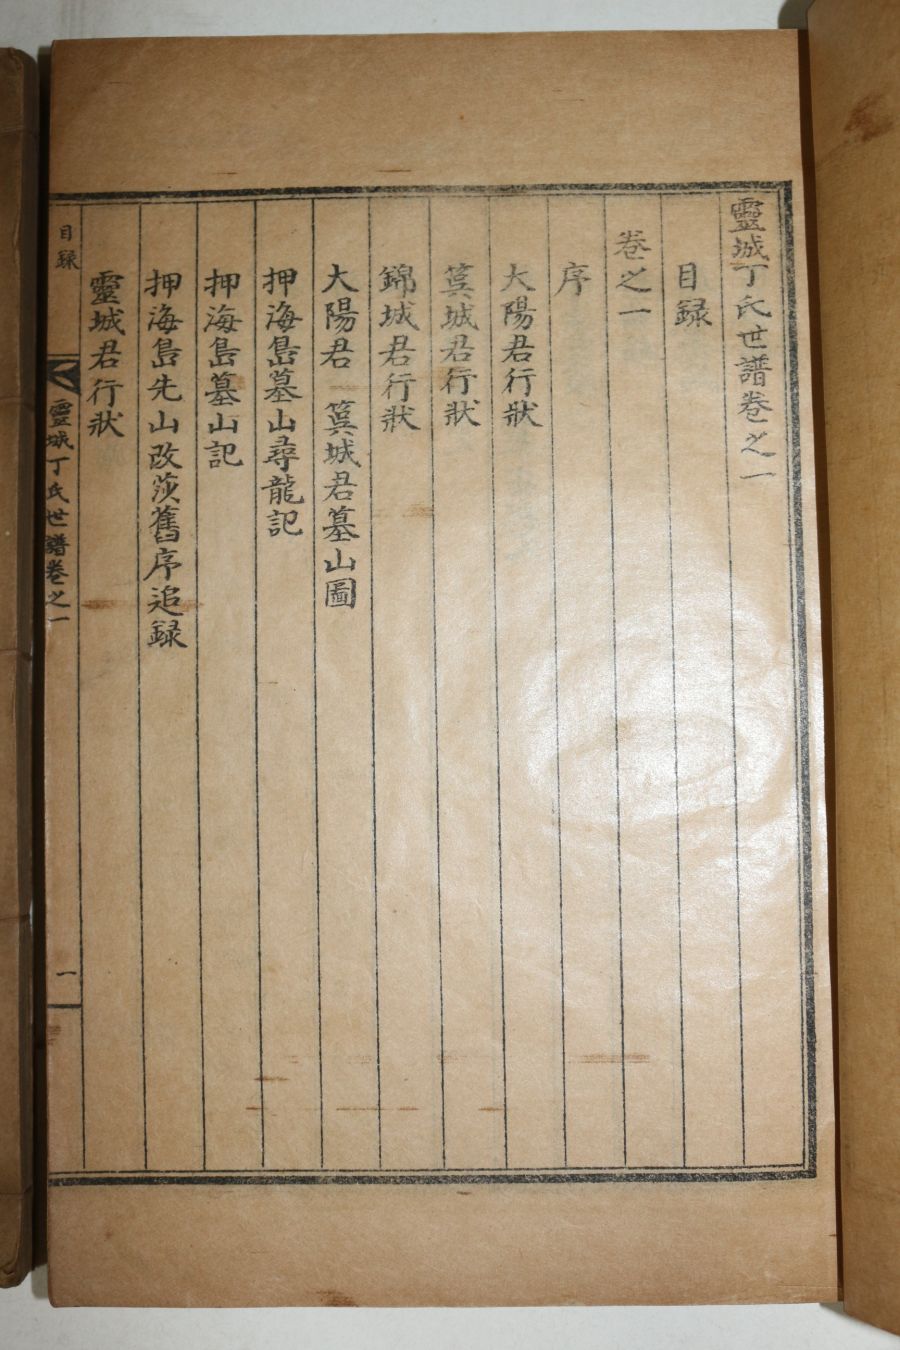 靈城丁氏世譜卷之一
目録
卷之一
序
大陽君行狀
箕城君行狀
錦城君行狀
大陽君 箕城君墓山圖
押海島墓山尋龍記
押海島墓山記
押海島先山改莎舊序追録
靈城君行狀
目録
靈城丁氏世譜卷之一
一